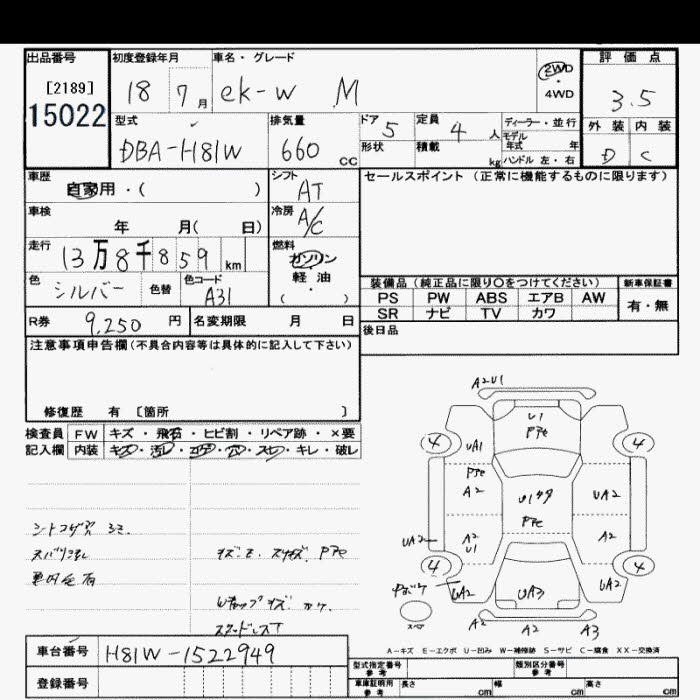 出品番号 初度登録年月 車名・グレード 評価点
[2189] 18 7月 ek-w M 2WD ・ 4WD 3.5
15022
型式 排気量 ドア 定員 ディーラー・並行 外装 内装
DBA-H81W 660 CC 5 4人 モデル年式 年 D C
形状 積載 kg ハンドル 左・右
車歴 自家用・( ) シフト AT セールスポイント(正常に機能するものに限ります)
車検 年 月( 日) 冷房 A/C
走行 13万8千859 km 燃料 ガソリン 軽油 ・ ( )
色 シルバー 色替 色コード A31
装備品(純正品に限り○をつけてください) 新車保証書
PS PW ABS エアB AW 有・無
SR ナビ TV カワ
R券 9,250円 名変期限 月 日 後日品
注意事項申告欄(不具合内容等は具体的に記入して下さい)
修復歴 有 [箇所 ]
検査員 FW キズ・飛石・ヒビ割・リペア跡・×要
記入欄 内装 キズ・汚レ・コゲ・穴・スレ・キレ・破レ
A2U1
U1
PPe
4 UA1 4
PPe
A2 UA2
PPe
UA2 A2 U1 A2
4 4
UA2 UA3 UA2
スペア
A2 A2 A3
PPe
A-キズ E-エクボ U-凹み W-補修跡 S-サビ C-腐食 XX-交換済
車台番号 H81W-1522949
登録番号
型式指定番号 参考 類別区分番号 参考
車庫証明用 参考 長さ cm 幅 cm 高さ cm